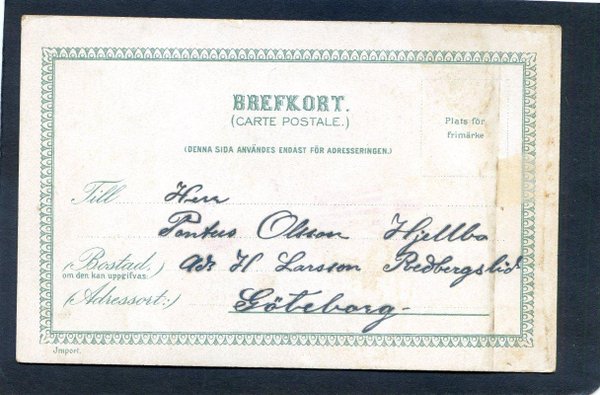 BREFKORT.
(CARTE POSTALE.)
Plats för
frimärke
(DENNA SIDA ANVÄNDES ENDAST FÖR ADRESSERINGEN.)
Till Herr
Pontus Olsson Hjellbo
(Bostad, adr H Larsson Redbergslid
om den kan uppgifvas:
(Adressort:) Göteborg-
Import.